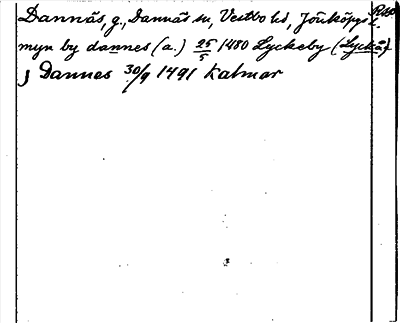 Dannäs, g., Dannäs sn, Västbo hd, Jönköpgs l.
myn by dannes (a.) 25/5 1480 Lyckeby (Lyckå)
j Dannes 30/9 1491 Kalmar